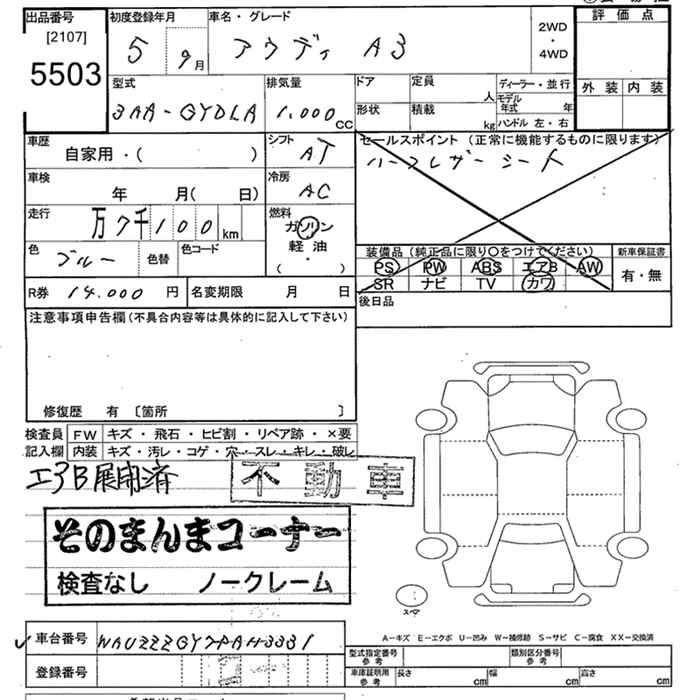 出品番号
[2107]
5503
初度登録年月
5 9月
車名・グレード
アウディ A3
2WD
・
4WD
評価点
外装 内装
型式
3AA-GYDLA
排気量
1.000cc
ドア
定員
人
形状
積載
kg
ディーラー・並行
モデル年式 年
ハンドル 左・右
車歴
自家用・( )
シフト
AT
セールスポイント (正常に機能するものに限ります)
ハーフレザーシート
車検
年 月( 日)
冷房
AC
走行
万7千100km
燃料
ガソリン
軽油
( ・ )
色
ブルー
色替
色コード
装備品 (純正品に限り○をつけてください)
PS PW ABS エアB AW
SR ナビ TV カワ
新車保証書
有・無
R券 14.000円
名変期限 月 日
後日品
注意事項申告欄 (不具合内容等は具体的に記入して下さい)
修復歴 有 〔箇所 〕
検査員記入欄
FW キズ・飛石・ヒビ割・リペア跡・×要
内装 キズ・汚レ・コゲ・穴・スレ・キレ・破レ
エアB展開済
不動車
そのまんまコーナー
検査なし ノークレーム
スペア
A-キズ E-エクボ U-凹み W-補修跡 S-サビ C-腐食 XX-交換済
車台番号
登録番号
型式指定番号 参考
類別区分番号 参考
車庫証明用 参考
長さ cm
幅 cm
高さ cm